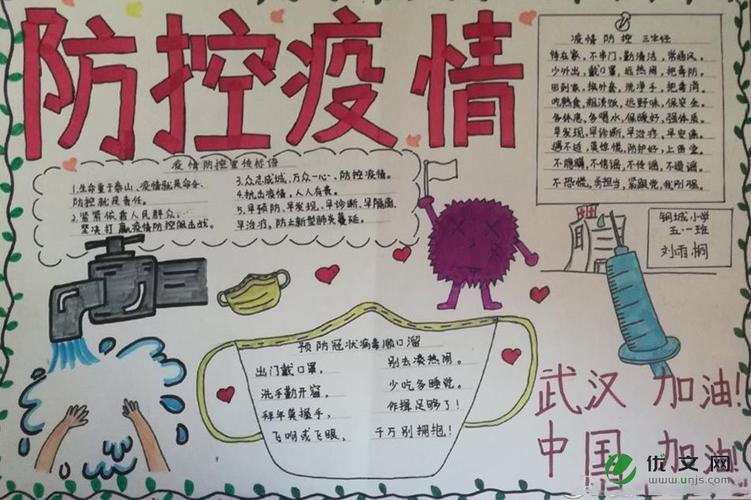 防控疫情
疫情防控 三字经
待在家,不串门,勤清洁,常通风。
少外出,戴口罩,远热闹,把毒防。
回到家,换外套,洗净手,把毒消。
吃熟食,粗淡饭,远野味,保安全。
多休息,多喝水,保暖好,强体质。
早发现,早诊断,早治疗,早安康。
遇不适,莫惊慌,防护好,上医堂。
不隐瞒,不信谣,不传谣,不造谣。
不恐慌,勇担当,紧跟党,我则强。
疫情防控宣传标语
1.生命重于泰山,疫情就是命令,
防控就是责任。
2.紧紧依靠人民群众,
坚决打赢疫情防控阻击战。
3.众志成城,万众一心,防控疫情。
4.抗击疫情,人人有责。
5.早预防,早发现,早诊断,早隔离,
早治疗,防止新型肺炎蔓延。
钢城小学
五·一班
刘雨桐
预防冠状病毒顺口溜
出门戴口罩,
洗手勤开窗。
拜年莫握手,
飞吻或飞眼,
别去凑热闹。
少吃多睡觉。
作揖足够了!
千万别拥抱!
武汉 加油!
中国 加油!
优文网
www.unjs.com